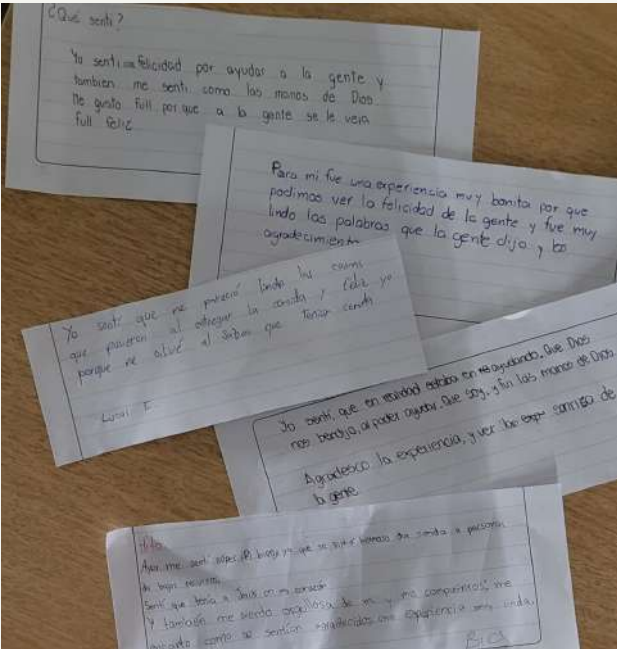 ¿Qué sentí?
Yo sentí felicidad por ayudar a la gente y
tambien me senti como las manos de Dios
Me gusto full porque a la gente se le veia
full feliz
Para mi fue una experiencia muy bonita por que
podimos ver la felicidad de la gente y fue muy
lindo las palabras que la gente dijo y los
agradecimiento
Yo sentí que me pareció linda las caras
que pusieron al entregar la comida y feliz yo
porque me alivé al saber que tenían cena
Yo sentí, que en realidad estaba en ayudando. Que Dios
nos bendijo, al poder ayudar. Que soy, y fui las manos de Dios
Agradesco la experiencia, y ver las sonrisa de
la gente
Ayer me sentí super bien ya que se siente hermoso dar comida a personas
de bajos recursos
Sentí que tenía a Jesús en mi corazón
Y también me siento orgullosa de mi y mis compañeros, me
encanto como se sentían agradecidos una experiencia muy linda.